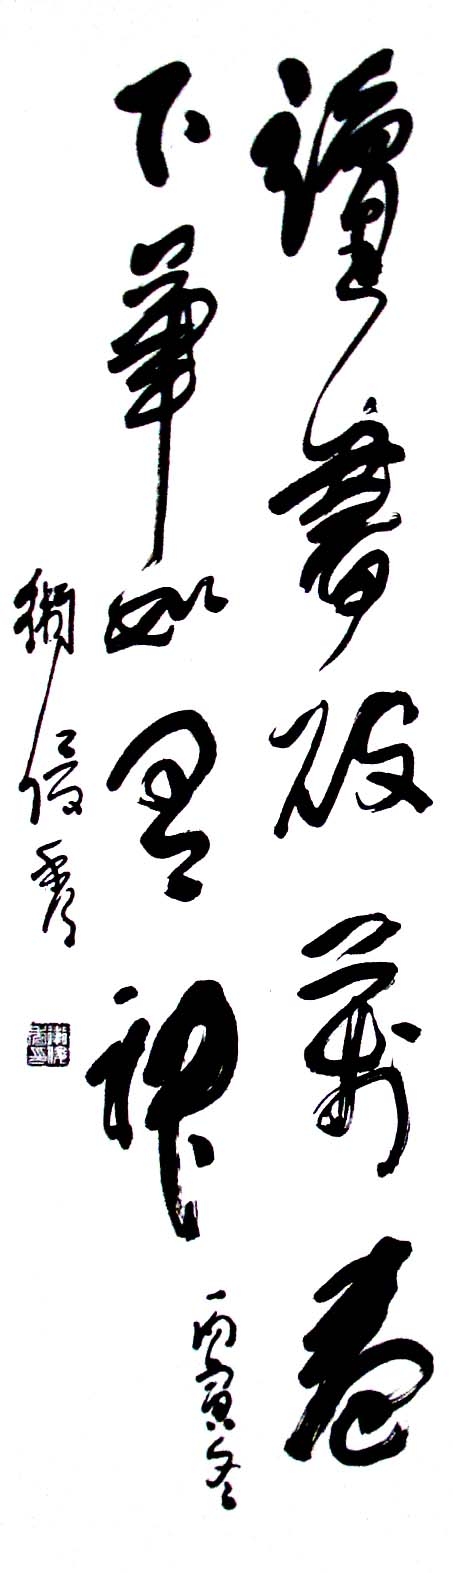 讀書破萬卷
下筆如有神
丙寅冬